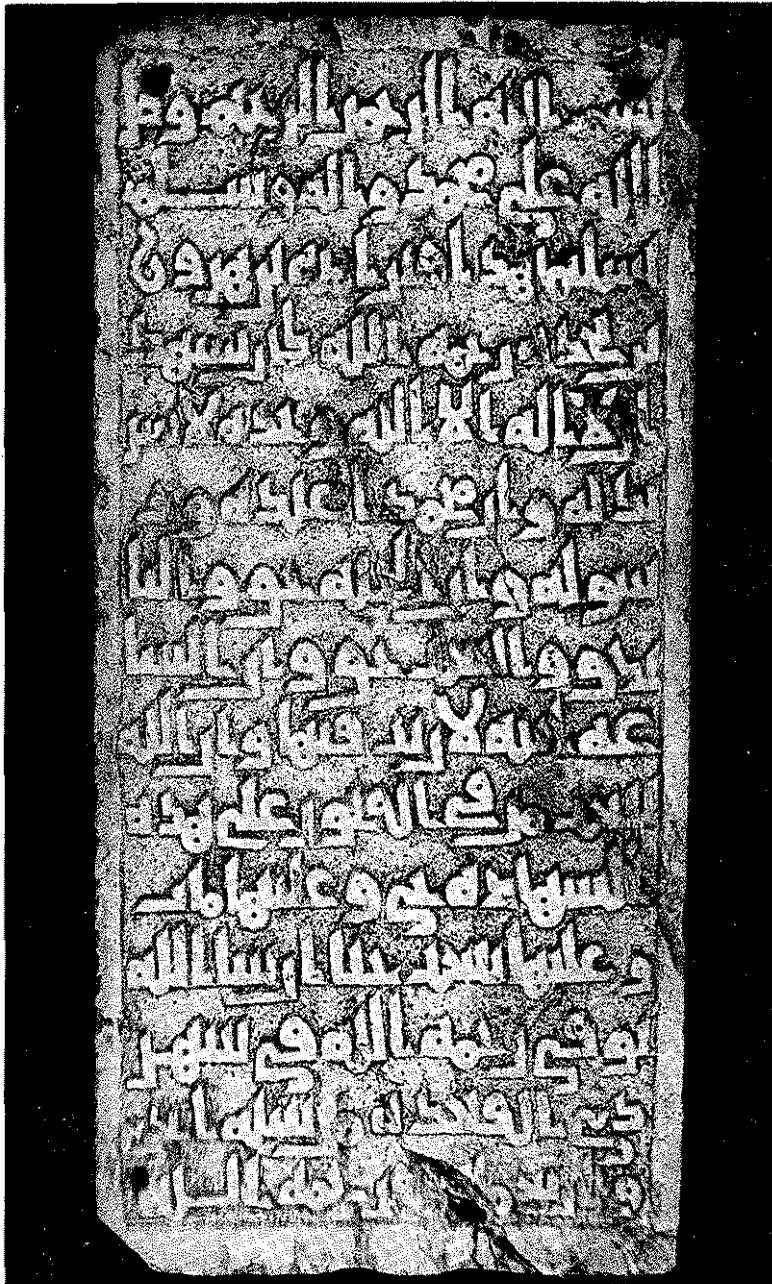 بسم الله الرحمن الرحيم وصلى
الله على محمد وآله وسلم
هذا قبر
رحمه الله كان يشهد
أن لا إله إلا الله وحده لا شر
يك له وأن محمدا عبده ور
سوله وأن الجنة حق والنا
ر حق وأن السا
عة آتية لا ريب فيها وأن الله
يبعث من في القبور على هذه
الشهادة حيي وعليها مات
وعليها يبعث حيا إن شاء الله
توفي رحمه الله في شهر
ذي القعدة
رحمة الله